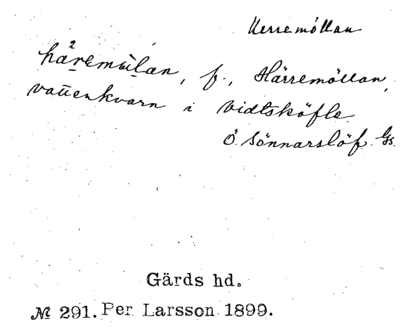 Herremöllan
häremúlan, f., Härremöllan,
vattenkvarn i Vidtsköfle.
Ö. Sönnarslöf. Gs.
Gärds hd.
№ 291. Per Larsson 1899.